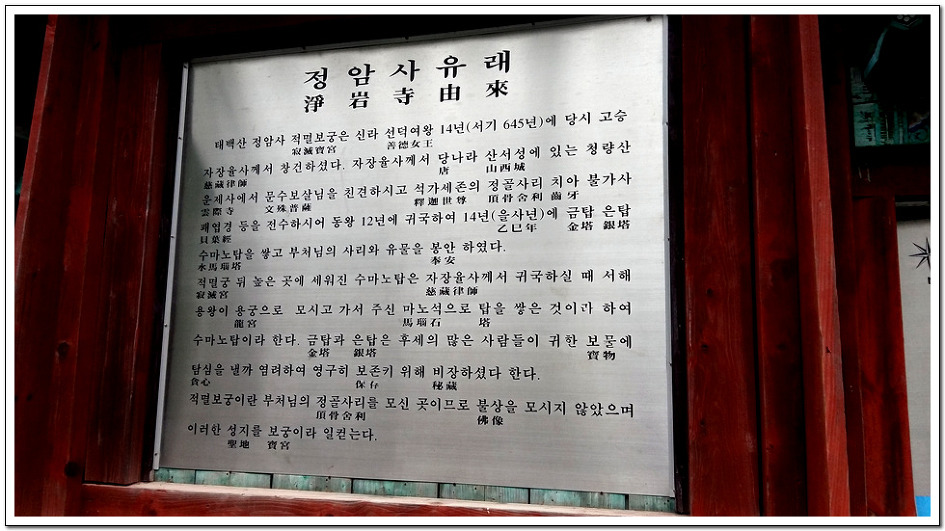 정암사유래
淨岩寺由來
태백산 정암사 적멸보궁은 신라 선덕여왕 14년(서기 645년)에 당시 고승
寂滅寶宮 善德女王
자장율사께서 창건하셨다. 자장율사께서 당나라 산서성에 있는 청량산
慈藏律師 唐 山西城
운제사에서 문수보살님을 친견하시고 석가세존의 정골사리 치아 불가사
雲際寺 文殊普薩 釋迦世尊 頂骨舍利 齒牙
패엽경 등을 전수하시어 동왕 12년에 귀국하여 14년(을사년)에 금탑 은탑
貝葉經 乙巳年 金塔 銀塔
수마노탑을 쌓고 부처님의 사리와 유물을 봉안 하였다.
水馬瑙塔 奉安
적멸궁 뒤 높은 곳에 세워진 수마노탑은 자장율사께서 귀국하실 때 서해
寂滅宮 慈藏律師
용왕이 용궁으로 모시고 가서 주신 마노석으로 탑을 쌓은 것이라 하여
龍宮 馬瑙石 塔
수마노탑이라 한다. 금탑과 은탑은 후세의 많은 사람들이 귀한 보물에
金塔 銀塔 寶物
탐심을 낼까 염려하여 영구히 보존키 위해 비장하셨다 한다.
貪心 保存 秘藏
적멸보궁이란 부처님의 정골사리를 모신 곳이므로 불상을 모시지 않았으며
頂骨舍利 佛像
이러한 성지를 보궁이라 일컫는다.
聖地 寶宮